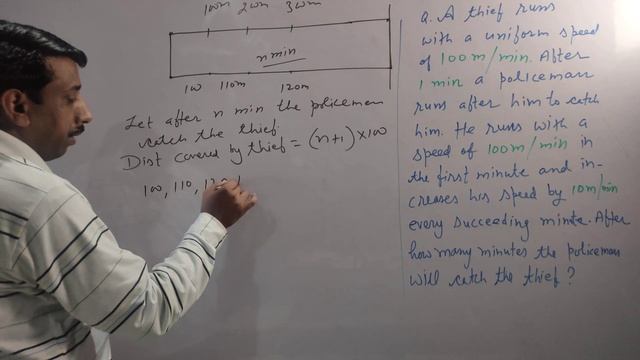 100m 200m 300m
n min
100 110m 120m
Let after n min the policeman
catch the thief
Dist covered by thief = (n+1) × 100
100, 110, 120,
Q. A thief runs
with a uniform speed
of 100 m/min. After
1 min a policeman
runs after him to catch
him. He runs with a
speed of 100 m/min in
the first minute and in-
creases his speed by 10 m/min
every succeeding minute. After
how many minutes the policeman
will catch the thief?